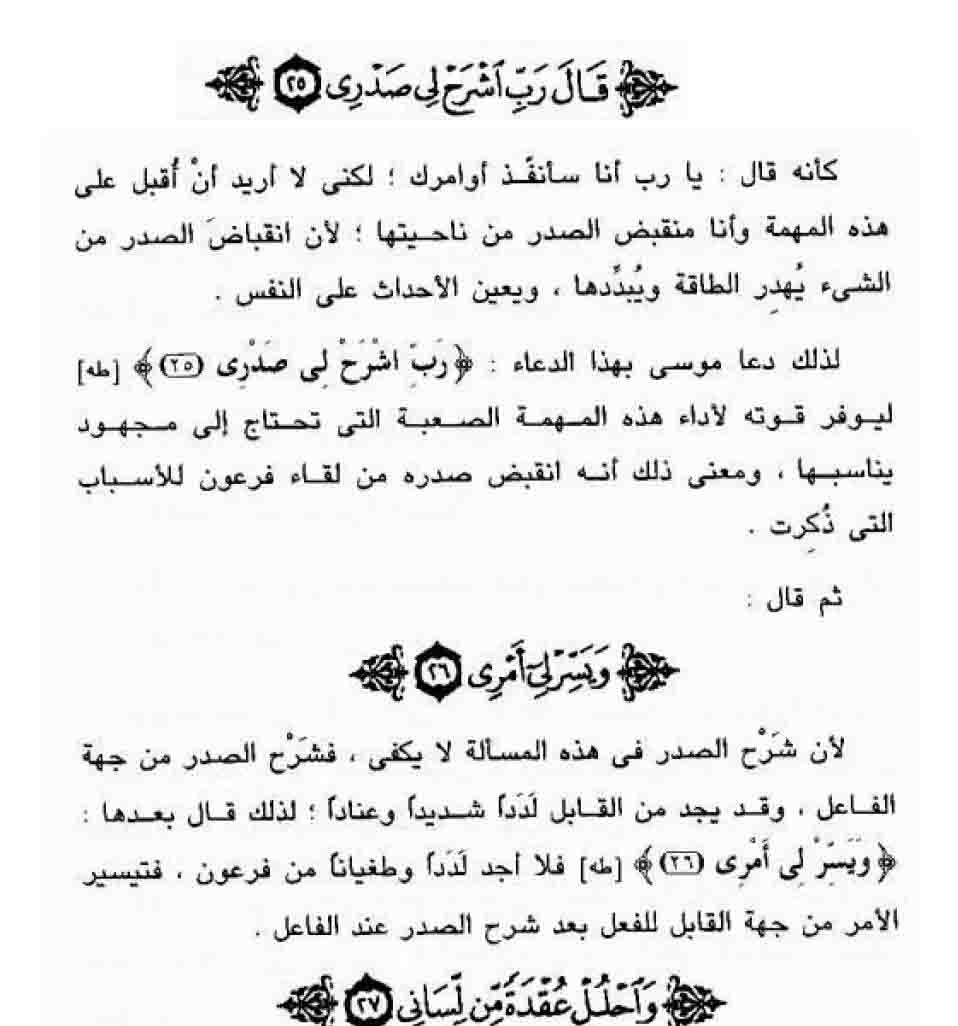 قَالَ رَبِّ ٱشْرَحْ لِى صَدْرِى ٢٥
كأنه قال : يا رب أنا سأنفِّذ أوامرك ؛ لكنى لا أريد أنْ أُقبل على
هذه المهمة وأنا منقبض الصدر من ناحيتها ؛ لأن انقباضَ الصدر من
الشىء يُهدِر الطاقة ويُبدِّدها ، ويعين الأحداث على النفس .
لذلك دعا موسى بهذا الدعاء : ﴿ رَبِّ اشْرَحْ لِى صَدْرِى (٢٥) ﴾ [طه]
ليوفر قوته لأداء هذه المهمة الصعبة التى تحتاج إلى مجهود
يناسبها ، ومعنى ذلك أنه انقبض صدره من لقاء فرعون للأسباب
التى ذُكِرت .
ثم قال :
وَيَسِّرْ لِىٓ أَمْرِى ٢٦
لأن شَرْح الصدر فى هذه المسألة لا يكفى ، فشَرْح الصدر من جهة
الفاعل ، وقد يجد من القابل لَدَداً شديداً وعناداً ؛ لذلك قال بعدها :
﴿ وَيَسِّرْ لِى أَمْرِى (٢٦) ﴾ [طه] فلا أجد لَدَداً وطغياناً من فرعون ، فتيسير
الأمر من جهة القابل للفعل بعد شرح الصدر عند الفاعل .
وَٱحْلُلْ عُقْدَةً مِّن لِّسَانِى ٢٧